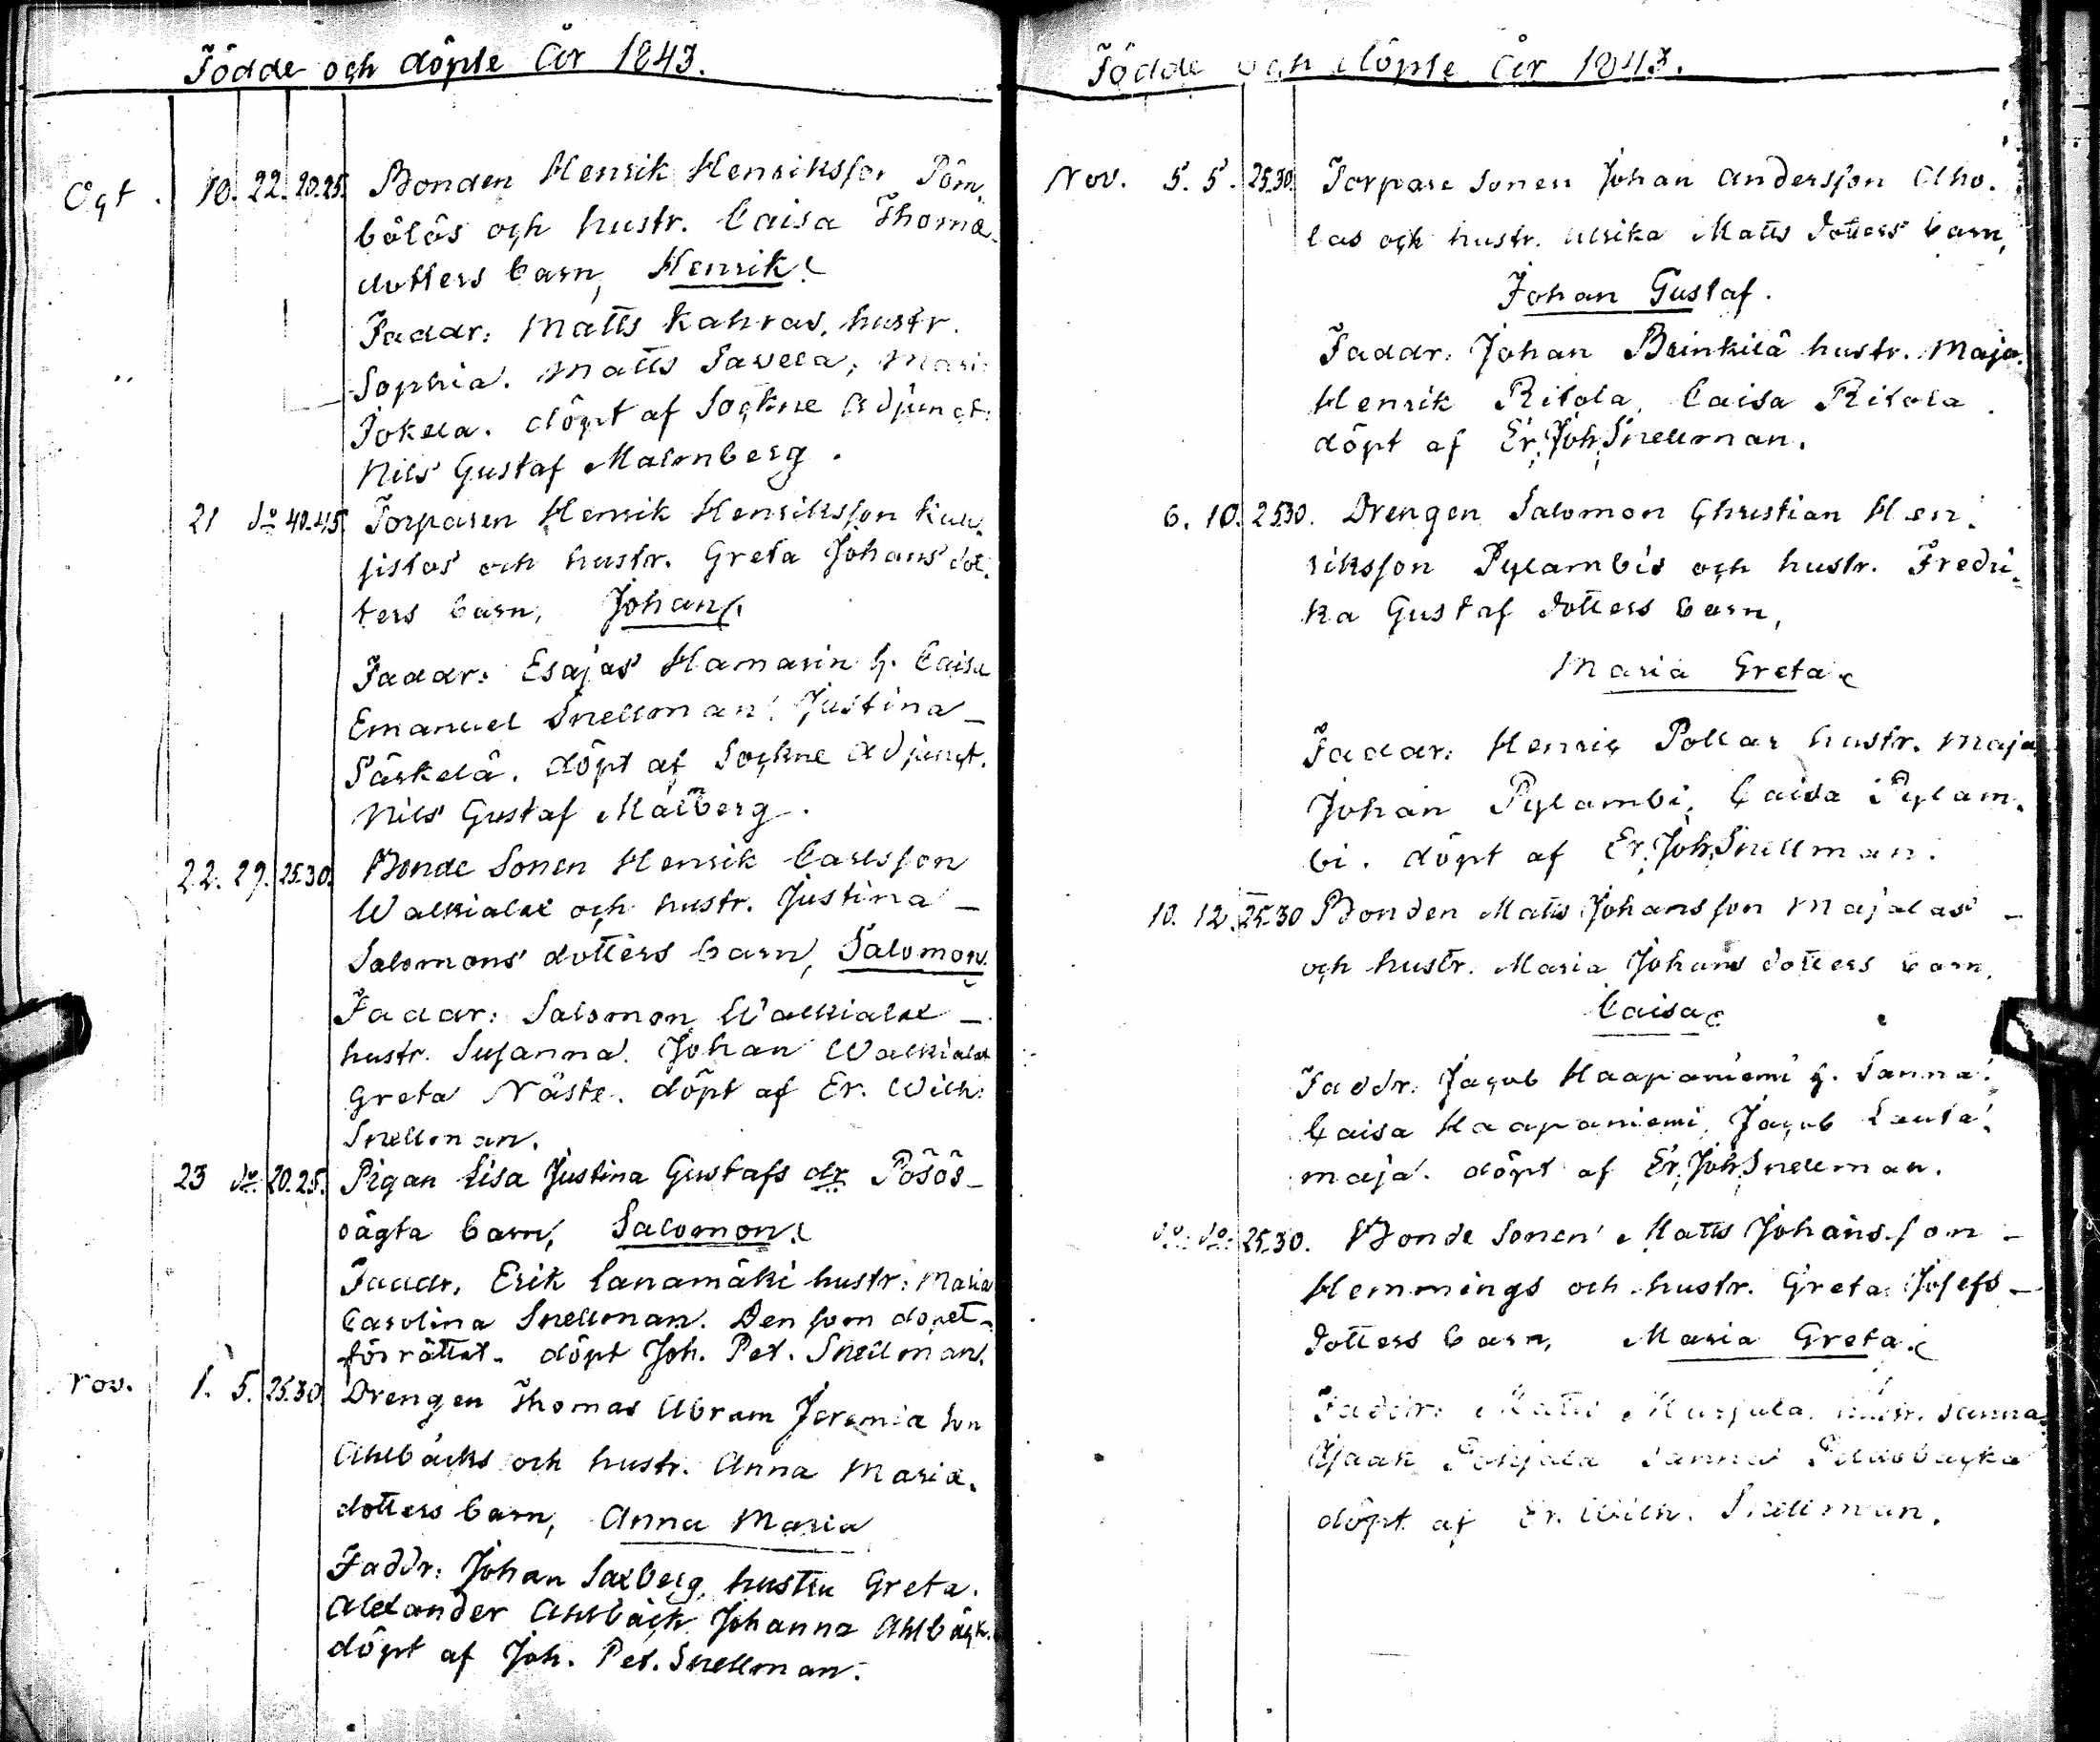 Födde och döpte År 1843.
Oct. 10. 22. 20.25. Bonden Henrik Henriksson Pöm-
bölös och hustr. Caisa Thomæ
dotters barn, Henrik.
Faddr: Matts Kahras, hustr.
Sophia. Matts Savela, Mari
Jokela. döpt af Sockne Adjunct:
Nils Gustaf Malmberg.
21 do 40.45. Torparen Henrik Henriksson
sistos och hustr. Greta Johans dot-
ters barn, Johan.
Faddr: Esajas Hamarin h. Caisa
Emanuel Snellman, Justina
Särkelä. döpt af Sockne Adjunct.
Nils Gustaf Malberg.
22. 29. 25.30. Bonde Sonen Henrik Carlsson
Walkiala och hustr. Justina
Salomons dotters barn, Salomon.
Faddr: Salomon Walkiala
hustr. Susanna. Johan Walkiala
Greta Näste. döpt af Er. Wilh:
Snellman.
23 do 20.25. Pigan Lisa Justina Gustafs dr Pösös
oägta barn, Salomon.
Faddr. Erik Lanamäki hustr: Maria
Carolina Snellman. Den som dopet
förrättat. döpt Joh. Pet. Snellman.
Nov. 1. 5. 25.30. Drengen Thomas Abram Jeremia son
Ahlbäcks och hustr. Anna Maria
dotters barn, Anna Maria
Faddr: Johan Saxberg, hustru Greta.
Alexander Ahlbäck Johanna Ahlbäck.
döpt af Joh. Pet. Snellman.
Födde och döpte År 1843.
Nov. 5. 5. 25.30. Torpare Sonen Johan Andersson Aho-
las och hustr. Ulrika Matts dotters barn,
Johan Gustaf.
Faddr: Johan Brinkilä hustr. Maja.
Henrik Ritola, Caisa Ritola.
döpt af Er. Joh. Snellman.
6. 10. 25.30. Drengen Salomon Christian Hen-
riksson Pylambis och hustr. Fredri-
ka Gustaf dotters barn,
Maria Greta
Faddr: Henric Pollar hustr. Maja
Johan Pylambi, Caisa Pylam-
bi. döpt af Er. Joh. Snellman.
10. 12. 25.30 Bonden Matts Johansson Majalas
och hustr. Maria Johans dotters barn,
Caisa
Faddr: Jacob Haapaniemi h. Sanna.
Caisa Haapaniemi, Jacob Lauta-
maja. döpt af Er. Joh. Snellman.
do: do: 25.30. Bonde Sonen Matts Johansson
Hemmings och hustr. Greta Josefs
dotters barn, Maria Greta.
Faddr: Matts hustr. Sanna
Isaak Pohjala Sanna
döpt af Er. Wilh. Snellman.